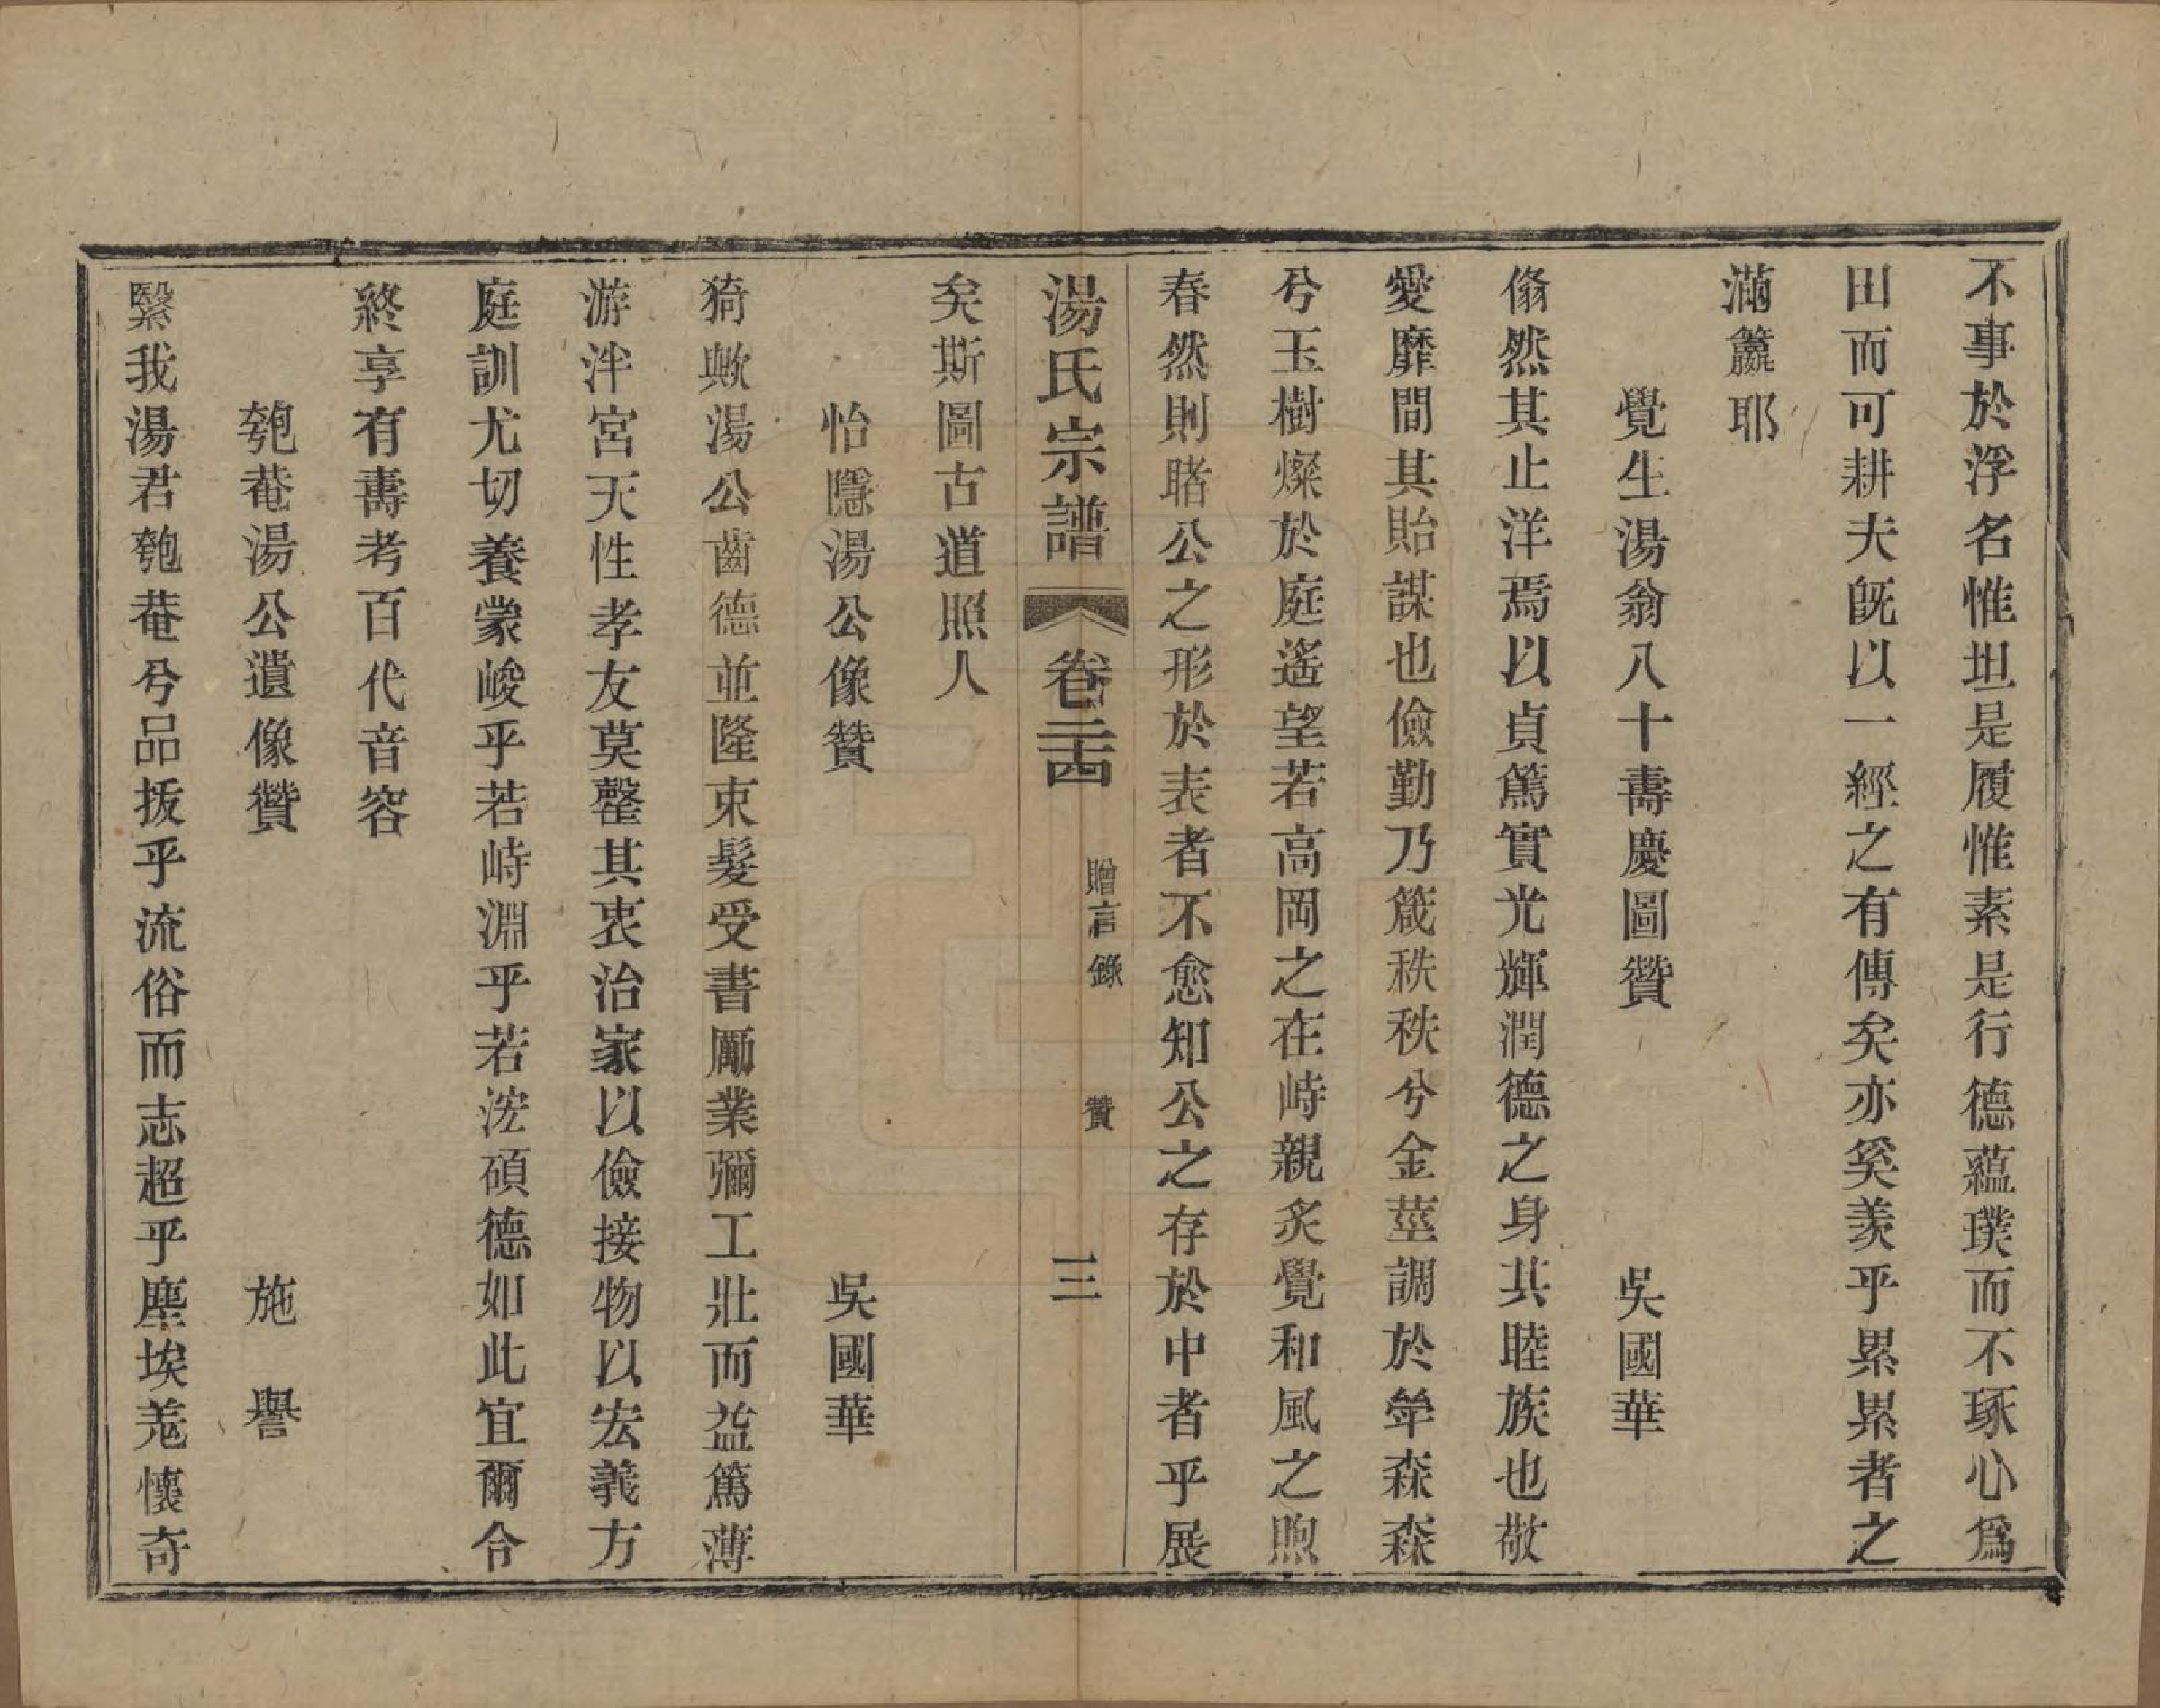 不事於浮名惟坦是履惟素是行德蘊璞而不琢心爲
田而可耕夫旣以一經之有傳矣亦奚羨乎累累者之
滿籯耶
覺生湯翁八十壽慶圖贊　吳國華
翛然其止洋焉以貞篤實光輝潤德之身其睦族也敬
愛靡間其貽謀也儉勤乃箴秩秩兮金莖調於竿森森
兮玉樹燦於庭遙望若高岡之在峙親炙覺和風之煦
春然則睹公之形於表者不愈知公之存於中者乎展
湯氏宗譜　卷二十四　贈言錄　贊　三
矣斯圖古道照人
怡隱湯公像贊　吳國華
猗歟湯公齒德並隆束髮受書勵業彌工壯而益篤薄
游泮宮天性孝友莫罄其衷治家以儉接物以宏義方
庭訓尤切養蒙峻乎若峙淵乎若浤碩德如此宜爾令
終享有壽考百代音容
匏菴湯公遺像贊　施譽
緊我湯君匏菴兮品拔乎流俗而志超乎塵埃羗懷奇